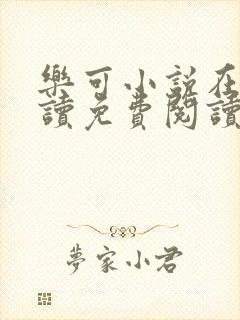 樂可小說在
讀免費閱讀
夢家小君